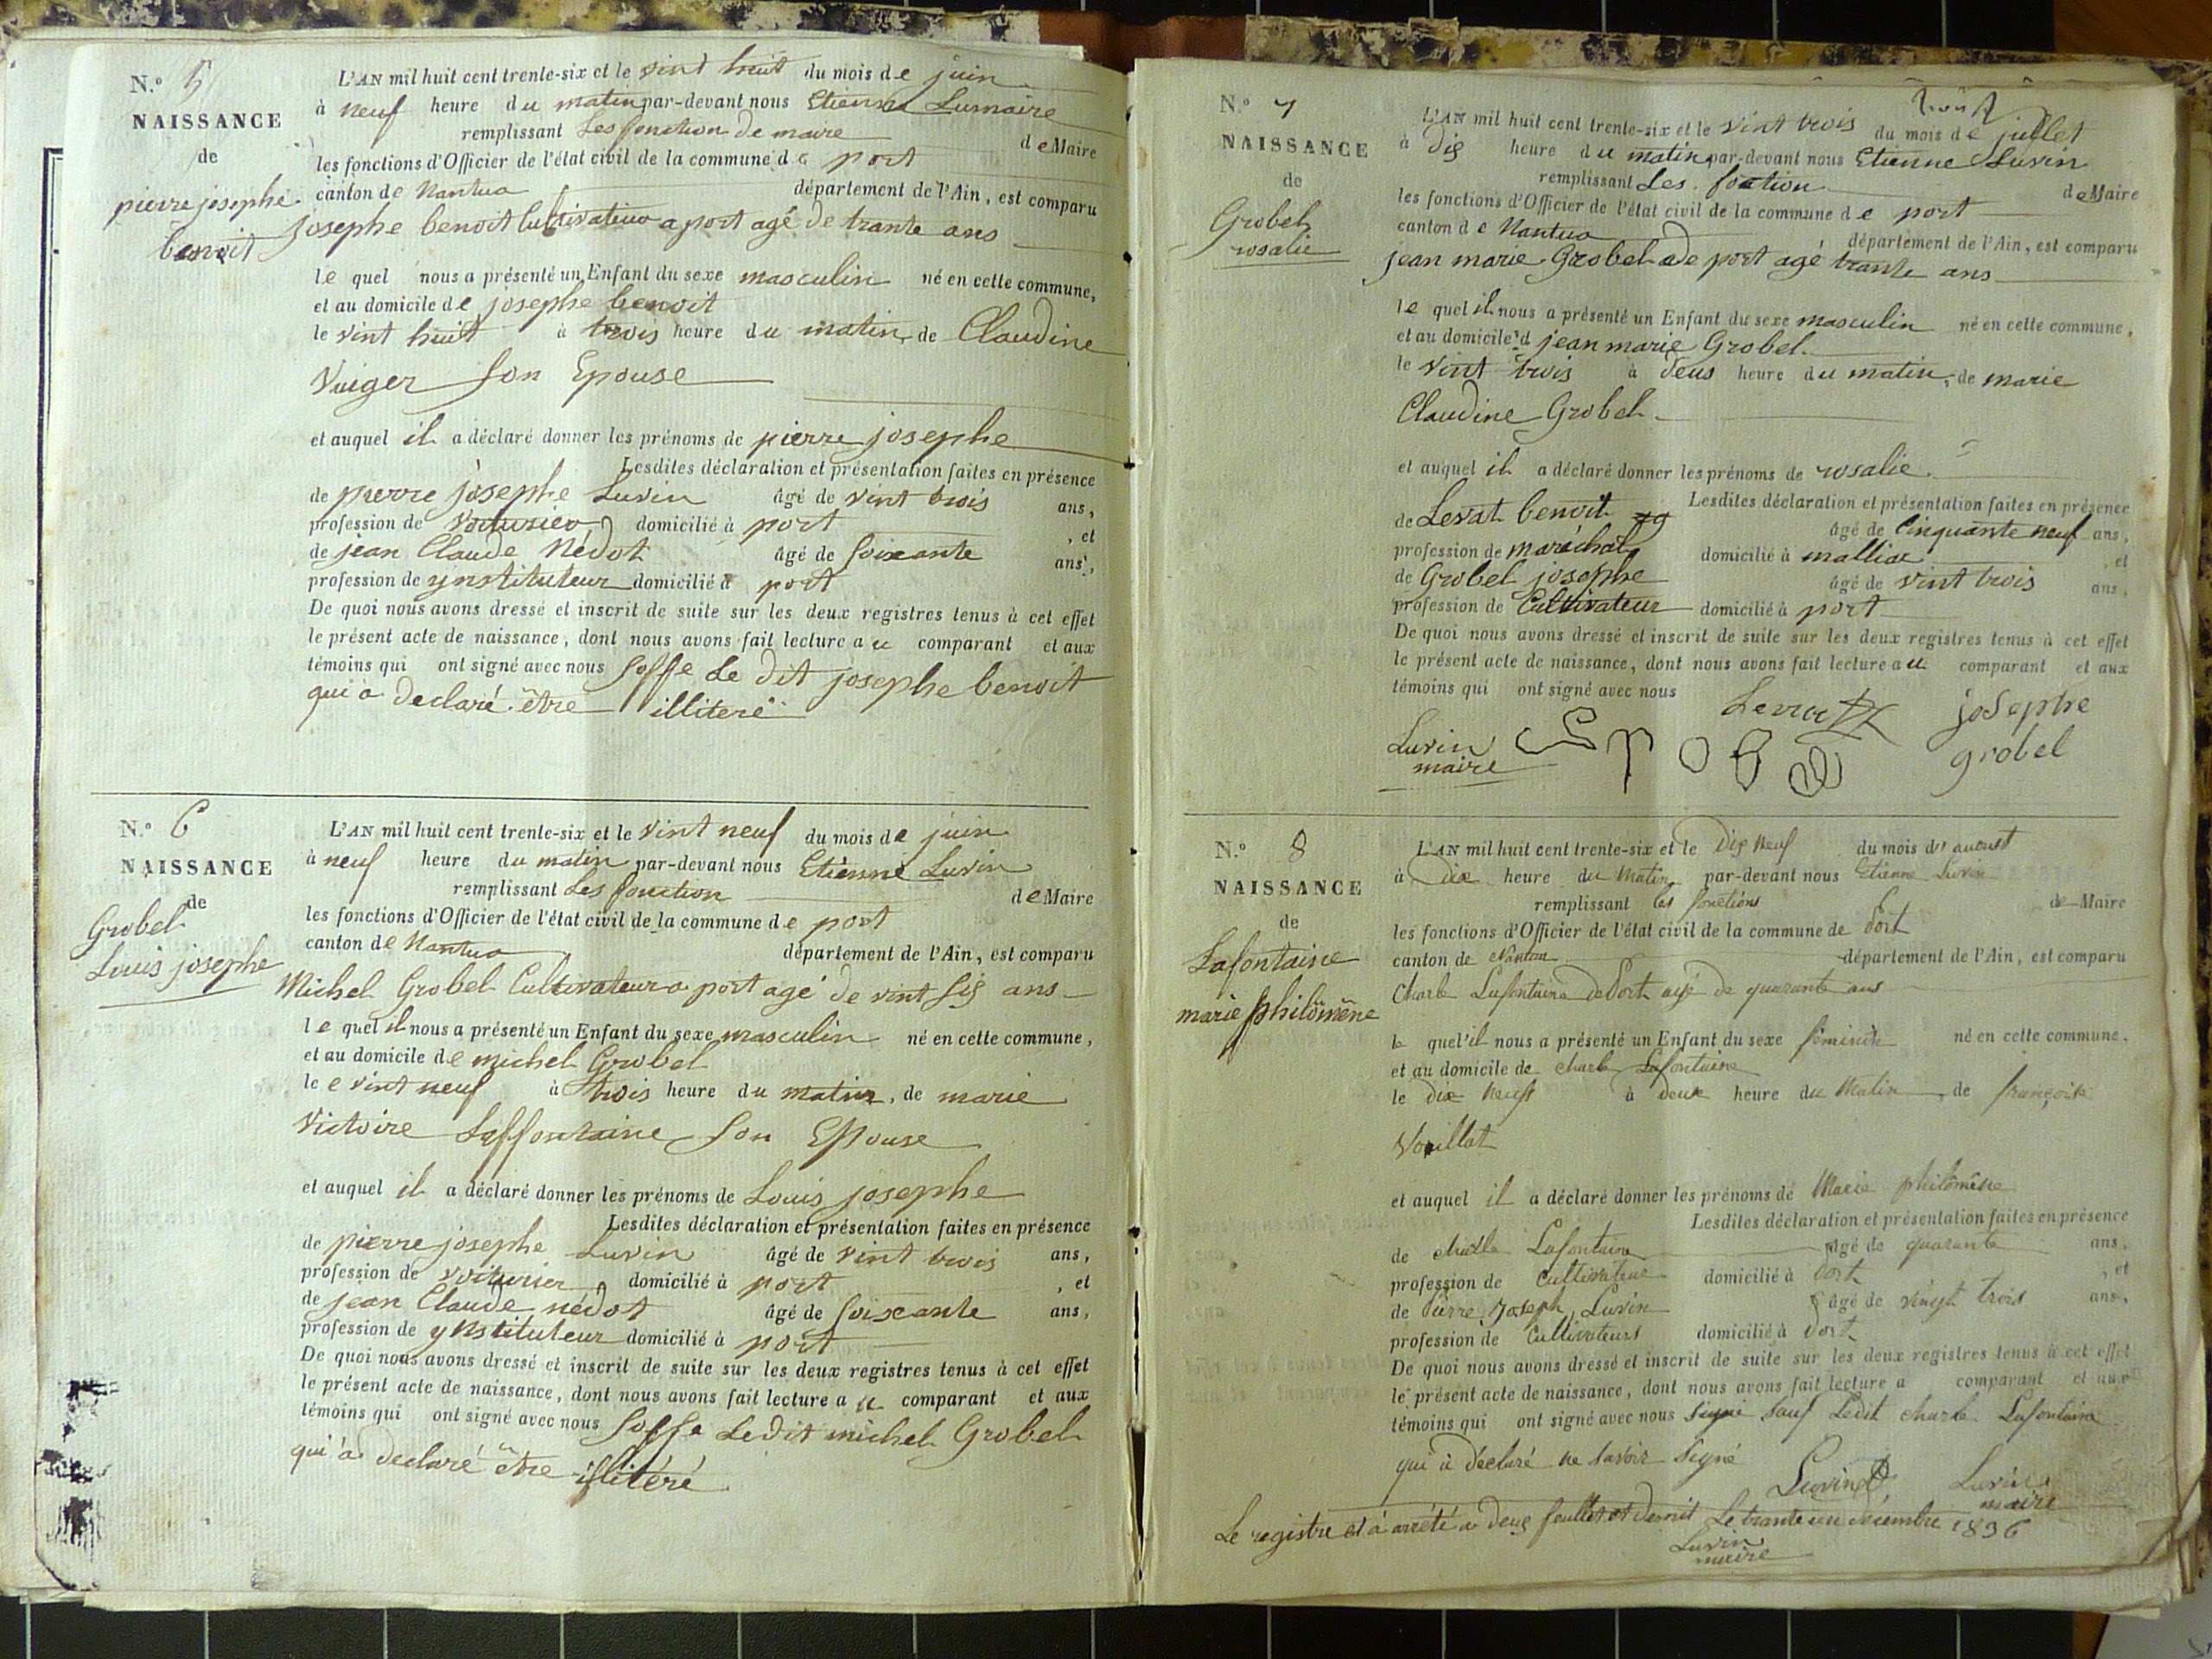 N.º 5
NAISSANCE
de
pierre josephe
benoit
L'AN mil huit cent trente-six et le vint huit du mois de juin
à neuf heure du matin par-devant nous Etienne Lumaire
remplissant Les fonction de maire de Maire
les fonctions d'Officier de l'état civil de la commune de port
canton de Nantua département de l'Ain, est comparu
josephe benoit Cultivateur a port agé de trante ans
le quel nous a présenté un Enfant du sexe masculin né en cette commune,
et au domicile de josephe benoit
le vint huit à trois heure du matin, de Claudine
Vuiger son Epouse
et auquel il a déclaré donner les prénoms de pierre josephe
Lesdites déclaration et présentation faites en présence
de pierre josephe Luvin âgé de vint trois ans,
profession de voiturier domicilié à port , et
de jean Claude Nédot âgé de soixante ans,
profession de ynstituteur domicilié à port
De quoi nous avons dressé et inscrit de suite sur les deux registres tenus à cet effet
le présent acte de naissance, dont nous avons fait lecture au comparant et aux
témoins qui ont signé avec nous soffe Le dit josephe benoit
qui a declaré être illiteré
N.º 6
NAISSANCE
de
Grobel
Louis josephe
L'AN mil huit cent trente-six et le vint neuf du mois de juin
à neuf heure du matin par-devant nous Etienne Luvin
remplissant Les fonction de Maire
les fonctions d'Officier de l'état civil de la commune de port
canton de Nantua département de l'Ain, est comparu
Michel Grobel Cultivateur a port agé de vint sis ans
le quel il nous a présenté un Enfant du sexe masculin né en cette commune,
et au domicile de michel Grobel
le e vint neuf à trois heure du matin, de marie
Victoire Laffontaine son Epouse
et auquel il a déclaré donner les prénoms de Louis josephe
Lesdites déclaration et présentation faites en présence
de pierre josephe Luvin âgé de vint trois ans,
profession de voiturier domicilié à port , et
de jean Claude nédot âgé de soixante ans,
profession de ynstituteur domicilié à port
De quoi nous avons dressé et inscrit de suite sur les deux registres tenus à cet effet
le présent acte de naissance, dont nous avons fait lecture au comparant et aux
témoins qui ont signé avec nous soffe Ledit michel Grobel
qui a declaré être illitéré
N.º 7
NAISSANCE
de
Grobel
rosalie
L'AN mil huit cent trente-six et le vint trois du mois de juillet
à dis heure du matin par-devant nous Etienne Luvin
remplissant Les foction de Maire
les fonctions d'Officier de l'état civil de la commune de port
canton de Nantua département de l'Ain, est comparu
jean marie Grobel de port agé trante ans
le quel il nous a présenté un Enfant du sexe masculin né en cette commune,
et au domicile d jean marie Grobel
le vint trois à deus heure du matin, de marie
Claudine Grobel
et auquel il a déclaré donner les prénoms de rosalie
Lesdites déclaration et présentation faites en présence
de Levrat benoit âgé de Cinquante neuf ans,
profession de maréchal domicilié à malliac , et
de Grobel josephe âgé de vint trois ans,
profession de Cultivateur domicilié à port
De quoi nous avons dressé et inscrit de suite sur les deux registres tenus à cet effet
le présent acte de naissance, dont nous avons fait lecture au comparant et aux
témoins qui ont signé avec nous
Levrat josephe
Luvin grobel
maire
N.º 8
NAISSANCE
de
Lafontaine
marie philomène
L'AN mil huit cent trente-six et le Dix neuf du mois de auoust
à Dix heure du Matin par-devant nous Etienne Luvin
remplissant les fonctions de Maire
les fonctions d'Officier de l'état civil de la commune de Port
canton de Nantua département de l'Ain, est comparu
Charle Lafontaine de Port agé de quarante ans
le quel'il nous a présenté un Enfant du sexe féminin né en cette commune,
et au domicile de charle Lafontaine
le Dix neuf à Deux heure du Matin, de françoise
Vouillat
et auquel il a déclaré donner les prénoms de Marie philomène
Lesdites déclaration et présentation faites en présence
de charle Lafontaine âgé de quarante ans,
profession de Cultivateur domicilié à Port , et
de Pierre Joseph Luvin âgé de vingt trois ans,
profession de Cultivateurs domicilié à Port
De quoi nous avons dressé et inscrit de suite sur les deux registres tenus à cet effet
le présent acte de naissance, dont nous avons fait lecture a comparant et aux
témoins qui ont signé avec nous signé sauf Ledit charle Lafontaine
qui à déclaré ne savoir signé
Luvin Luvin
maire
Le registre et a arrété a deus feullet et demit Le trante un décembre 1836
Luvin
maire